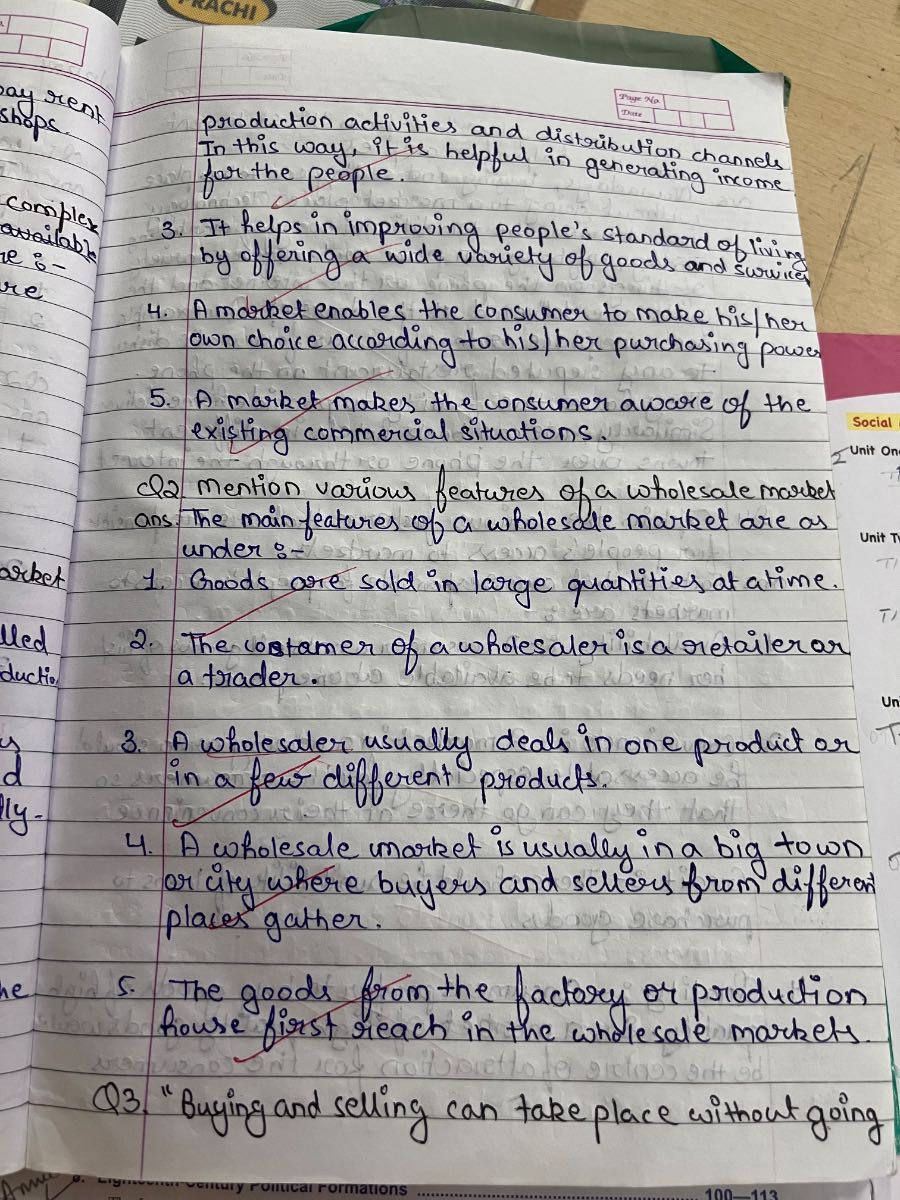 PRACHI
Page No.
Date
production activities and distribution channels
In this way, it is helpful in generating income
for the people.
3. It helps in improving people's standard of living
by offering a wide variety of goods and survices
4. A market enables the consumer to make his/her
own choice according to his/her purchasing power
5. A market makes the consumer aware of the
existing commercial situations.
Q2 mention various features of a wholesale market
ans. The main features of a wholesale market are as
under :-
1. Goods are sold in large quantities at a time.
2. The costamer of a wholesaler is a retailer or
a trader.
3. A wholesaler usually deals in one product or
in a few different products.
4. A wholesale market is usually in a big town
or city where buyers and sellers from different
places gather.
5. The goods from the factory or production
house first reach in the wholesale markets.
Q3. "Buying and selling can take place without going
pay rent
shops.
complex
availabl
re :-
re
arket
lled
ductio
d
lly.
he
Social
Unit On
Unit T
Un
Eighteenth Century Political Formations 100—113